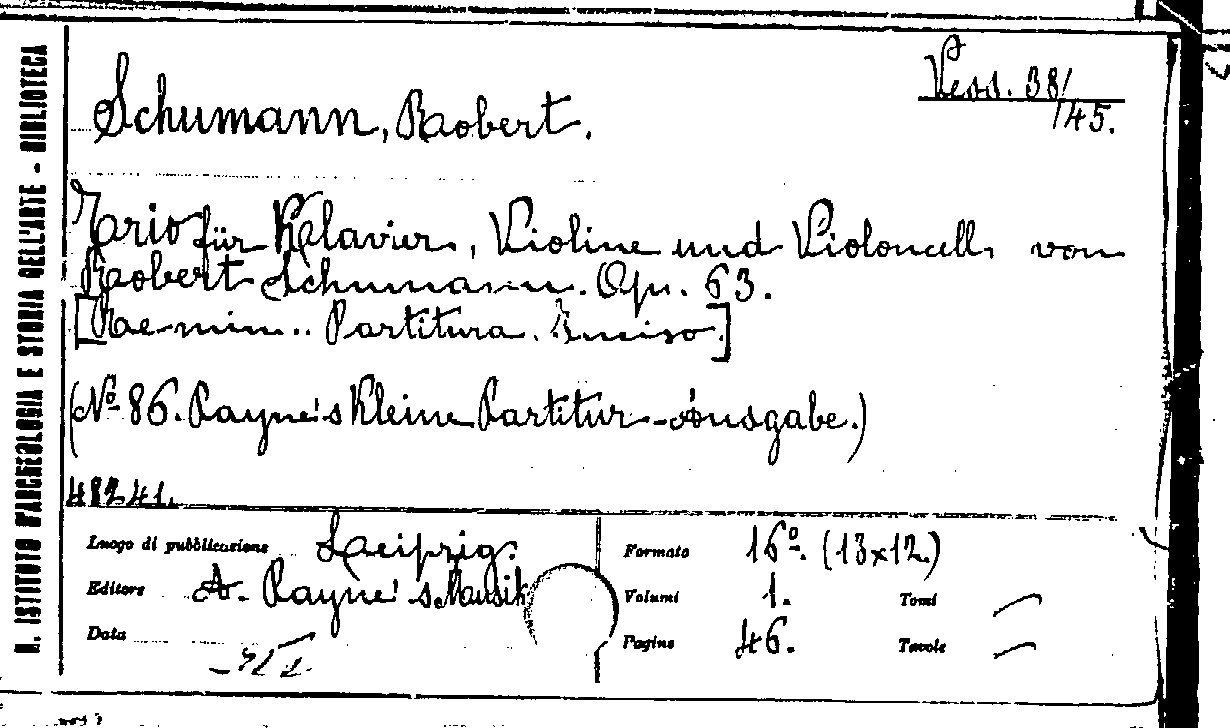 R. ISTITUTO D'ARCHEOLOGIA E STORIA DELL'ARTE - BIBLIOTECA
Vess. 38/145.
Schumann, Robert.
Trio für Klavier, Violine und Violoncell von
Robert Schumann. Op. 63.
[Re min.. Partitura. Inciso.]
(Nº 86. Payne's Kleine Partitur-Ausgabe.)
48241.
Luogo di pubblicazione Leipzig.
Editore A. Payne's Musik
Data
Formato 16º. (13x12.)
Volumi 1. Tomi —
Pagine 46. Tavole —